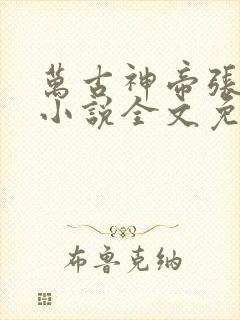 萬古神帝張
小說全文免
布魯克納